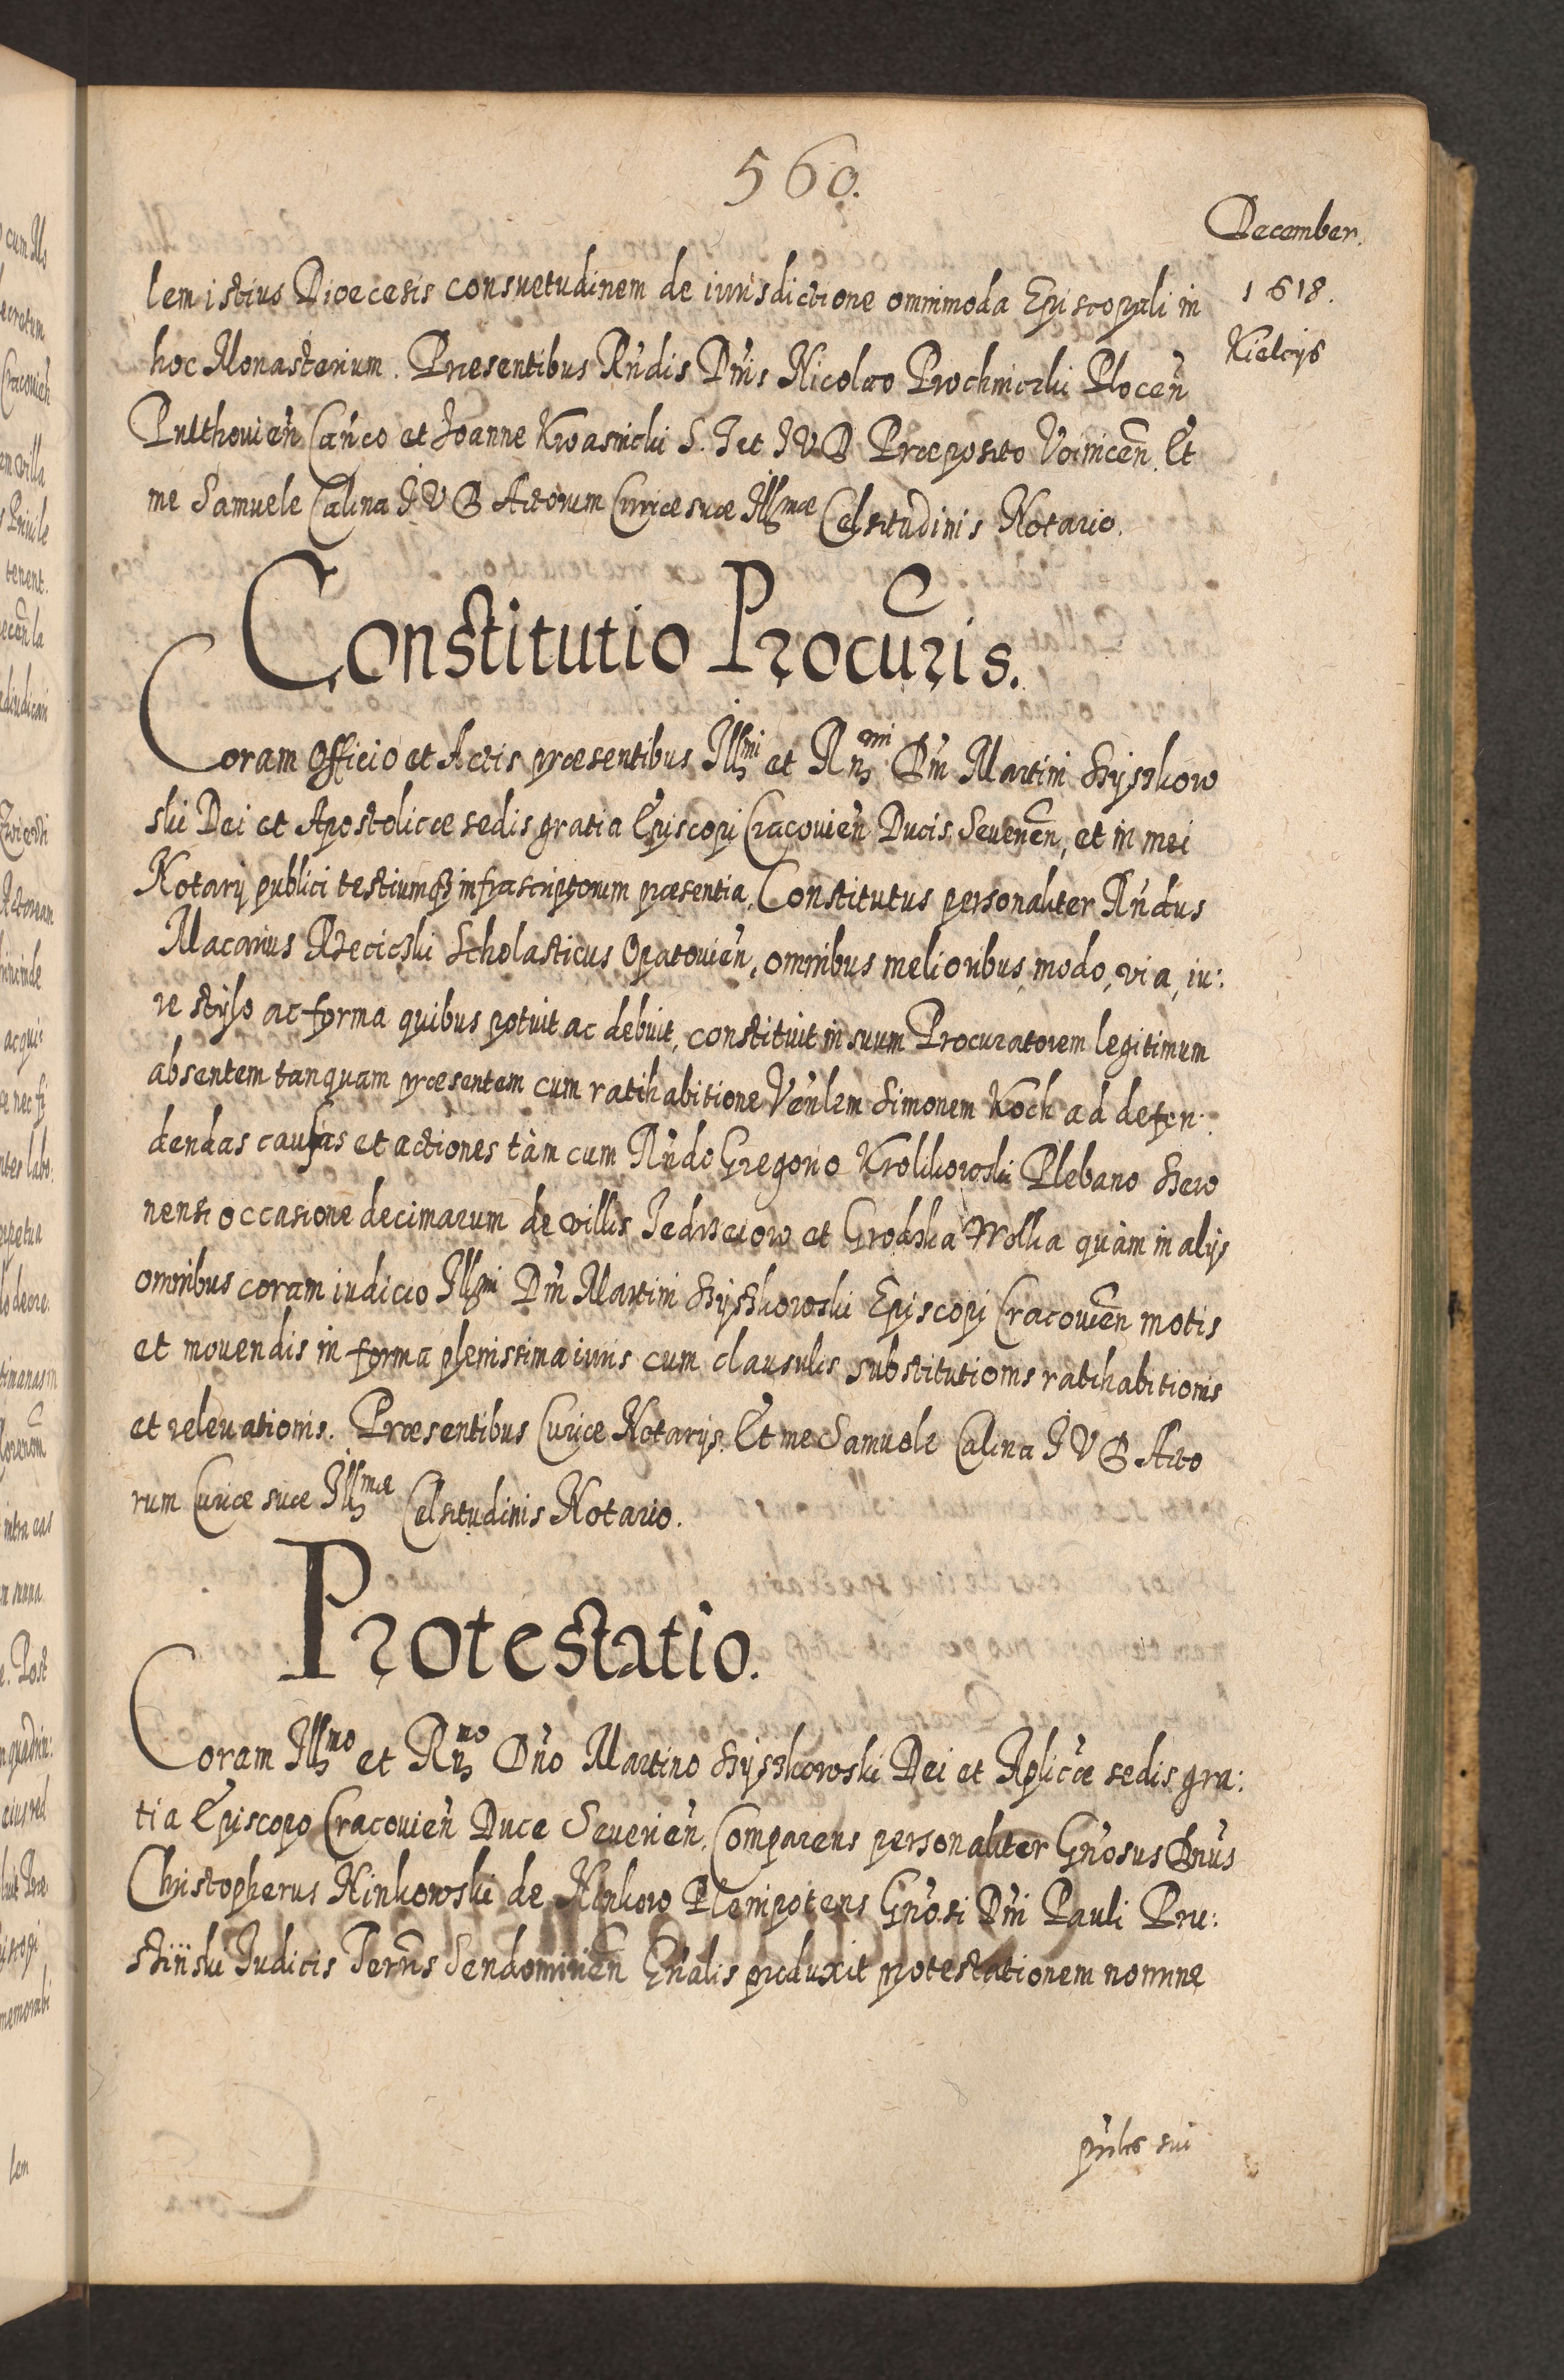 560.
December.
1618.
Kielcijs
lem istius Dioecesis consuetudinem de iurisdictione omnimoda Episcopali in
hoc Monasterium. Praesentibus Rndis Dnis Nicolao Prochnicki Plocen
Pulthouien Canco et Joanne Kwasnicki S. T et J V D Praeposito Voinicen. Et
me Samuele Calina J V D Actorum Curiae suae Illmae Celsitudinis Notario.
Constitutio Procuris.
Coram Officio et Actis praesentibus Illmi et Rnmi Dni Martini Szyszkow
ski Dei et Apostolicae sedis gratia Episcopi Cracouien Ducis Seueren, et in mei
Notarij publici testiumq; infrascriptorum praesentia, Constitutus personaliter Rndus
Macarius Rzeciczki Scholasticus Opatouien, omnibus melioribus modo, via, iu:
re stylo ac forma quibus potuit ac debuit, constituit in suum Procuratorem legitimum
absentem tanquam praesentem cum ratihabitione Venlem Simonem Koch ad defen:
dendas causas et actiones tàm cum Rndo Gregorio Krolikowski Plebano
nensi occasione decimarum de villis Jedrzeiow et Grodzka Wolka quàm in alijs
omnibus coram iudicio Illmi Dni Martini Szyszkowski Episcopi Cracouien motis
et mouendis in forma plenissima iuris cum clausulis substitutionis ratihabitionis
et releuationis. Praesentibus Curiae Notarijs. Et me Samuele Calina J V D Acto
rum Curiae suae Illmae Celsitudinis Notario.
Protestatio.
Coram Illmo et Rnmo Dno Martino Szyszkowski Dei et Aplicae sedis gra:
tia Episcopo Cracouien Duce Seuerien. Comparens personaliter Gnosus Dnus
Christopherus Minkowski de Minkow Plenipotens Gnosi Dni Pauli Pru:
Judicis Terris Sendomirien Gnalis produxit protestationem nomine
sui